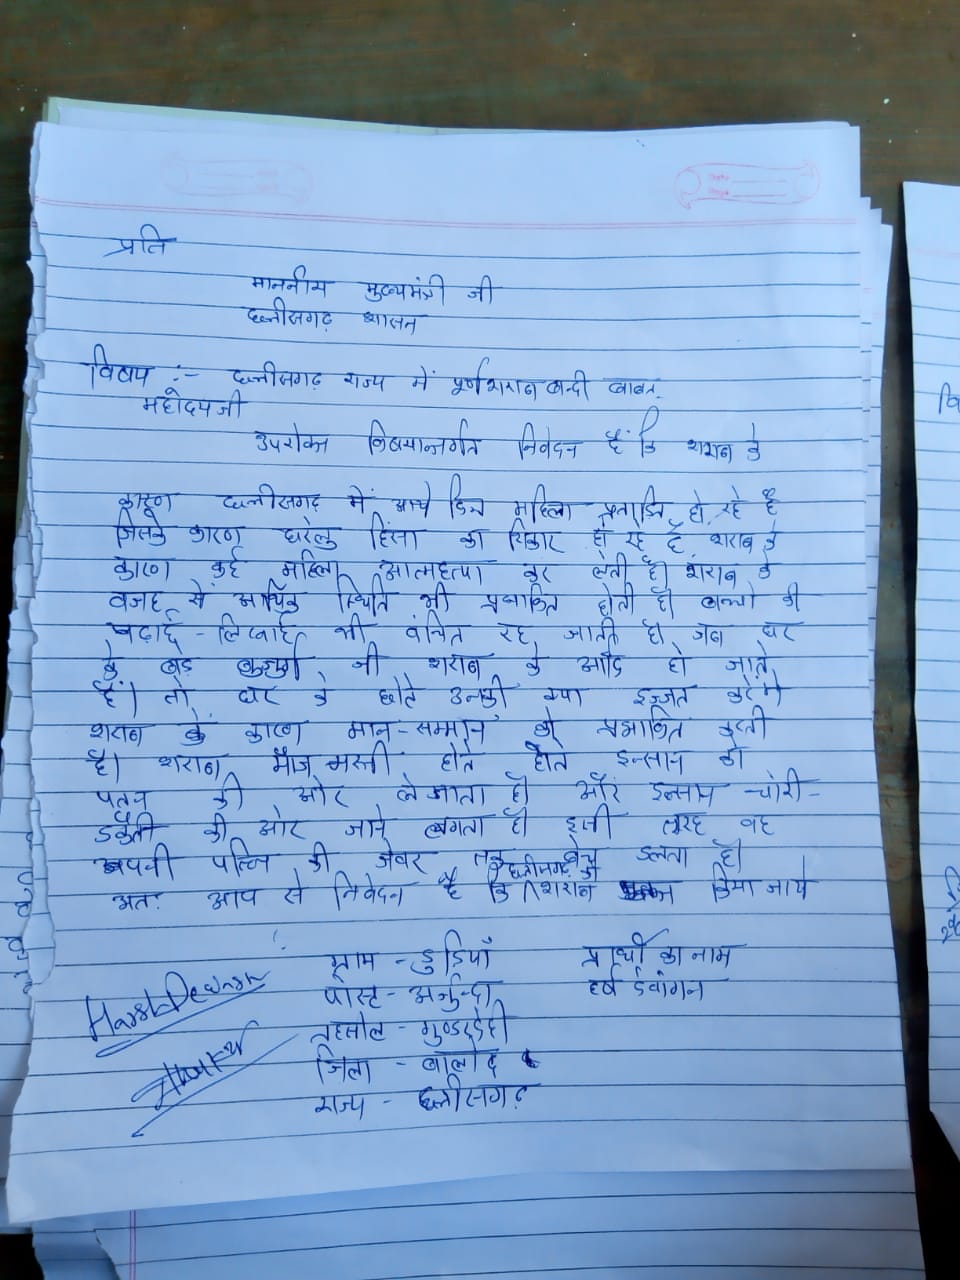 प्रति
माननीय मुख्यमंत्री जी
छत्तीसगढ़ शासन
विषय :- छत्तीसगढ़ राज्य में पूर्ण शराब बन्दी बाबत.
महोदय जी
उपरोक्त विषयान्तर्गत निवेदन है कि शराब के
कारण छत्तीसगढ़ में आये दिन महिला प्रताड़ित हो रहे है
जिसके कारण घरेलु हिंसा का शिकार हो रहे है, शराब के
कारण कई महिला आत्महत्या कर लेती है। शराब के
वजह से आर्थिक स्थिति भी प्रभावित होती है। बच्चो की
पढ़ाई - लिखाई भी वंचित रह जाती है। जब घर
के बड़े बुजुर्ग जी शराब के आदि हो जाते
है। तो घर के छोटे उनकी क्या इज्जत करेंगे
शराब के कारण मान-सम्मान को प्रभावित करती
है। शराब मौज मस्ती होते होते इन्सान को
पतन की ओर ले जाता है। और इन्सान चोरी-
डकैती की ओर जाने लगता है। इसी तरह वह
अपनी पत्नि की जेवर तक बेच डालता है।
अतः आप से निवेदन है कि छत्तीसगढ़ में शराब किया जाये
ग्राम - डुडियाँ प्रार्थी का नाम
पोस्ट - अर्जुन्दा हर्ष देवांगन
तहसील - गुण्डरदेही
जिला - बालोद
राज्य - छत्तीसगढ़
Harsh Dewangan